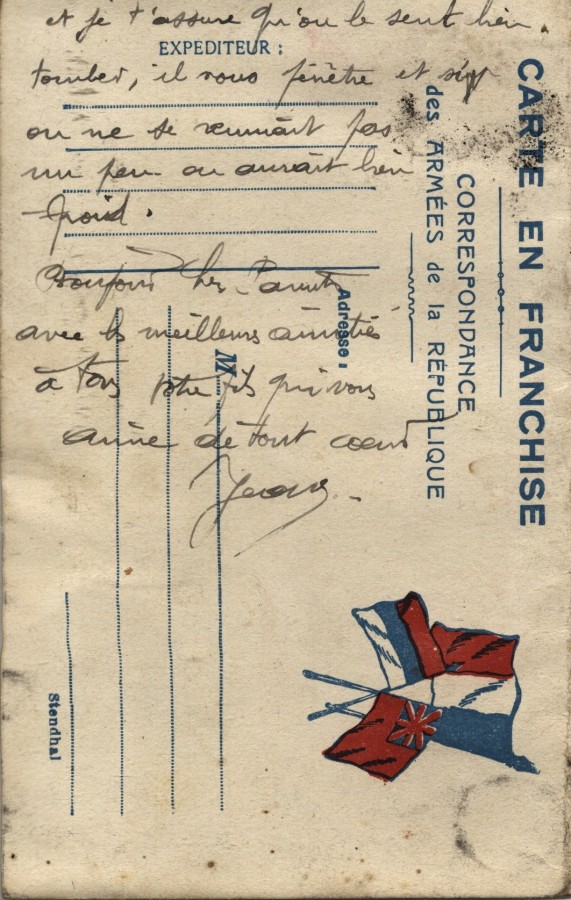 et je t'assure qu'on le sent bien
EXPEDITEUR :
tomber, il nous pénètre et si
on ne se remuait pas
un peu on aurait bien
froid.
Bonjour chez Parents
avec les meilleurs amitiés
à tous votre fils qui vous
aime de tout coeur
CARTE EN FRANCHISE
CORRESPONDANCE
des ARMÉES de la RÉPUBLIQUE
Adresse :
M
Stendhal